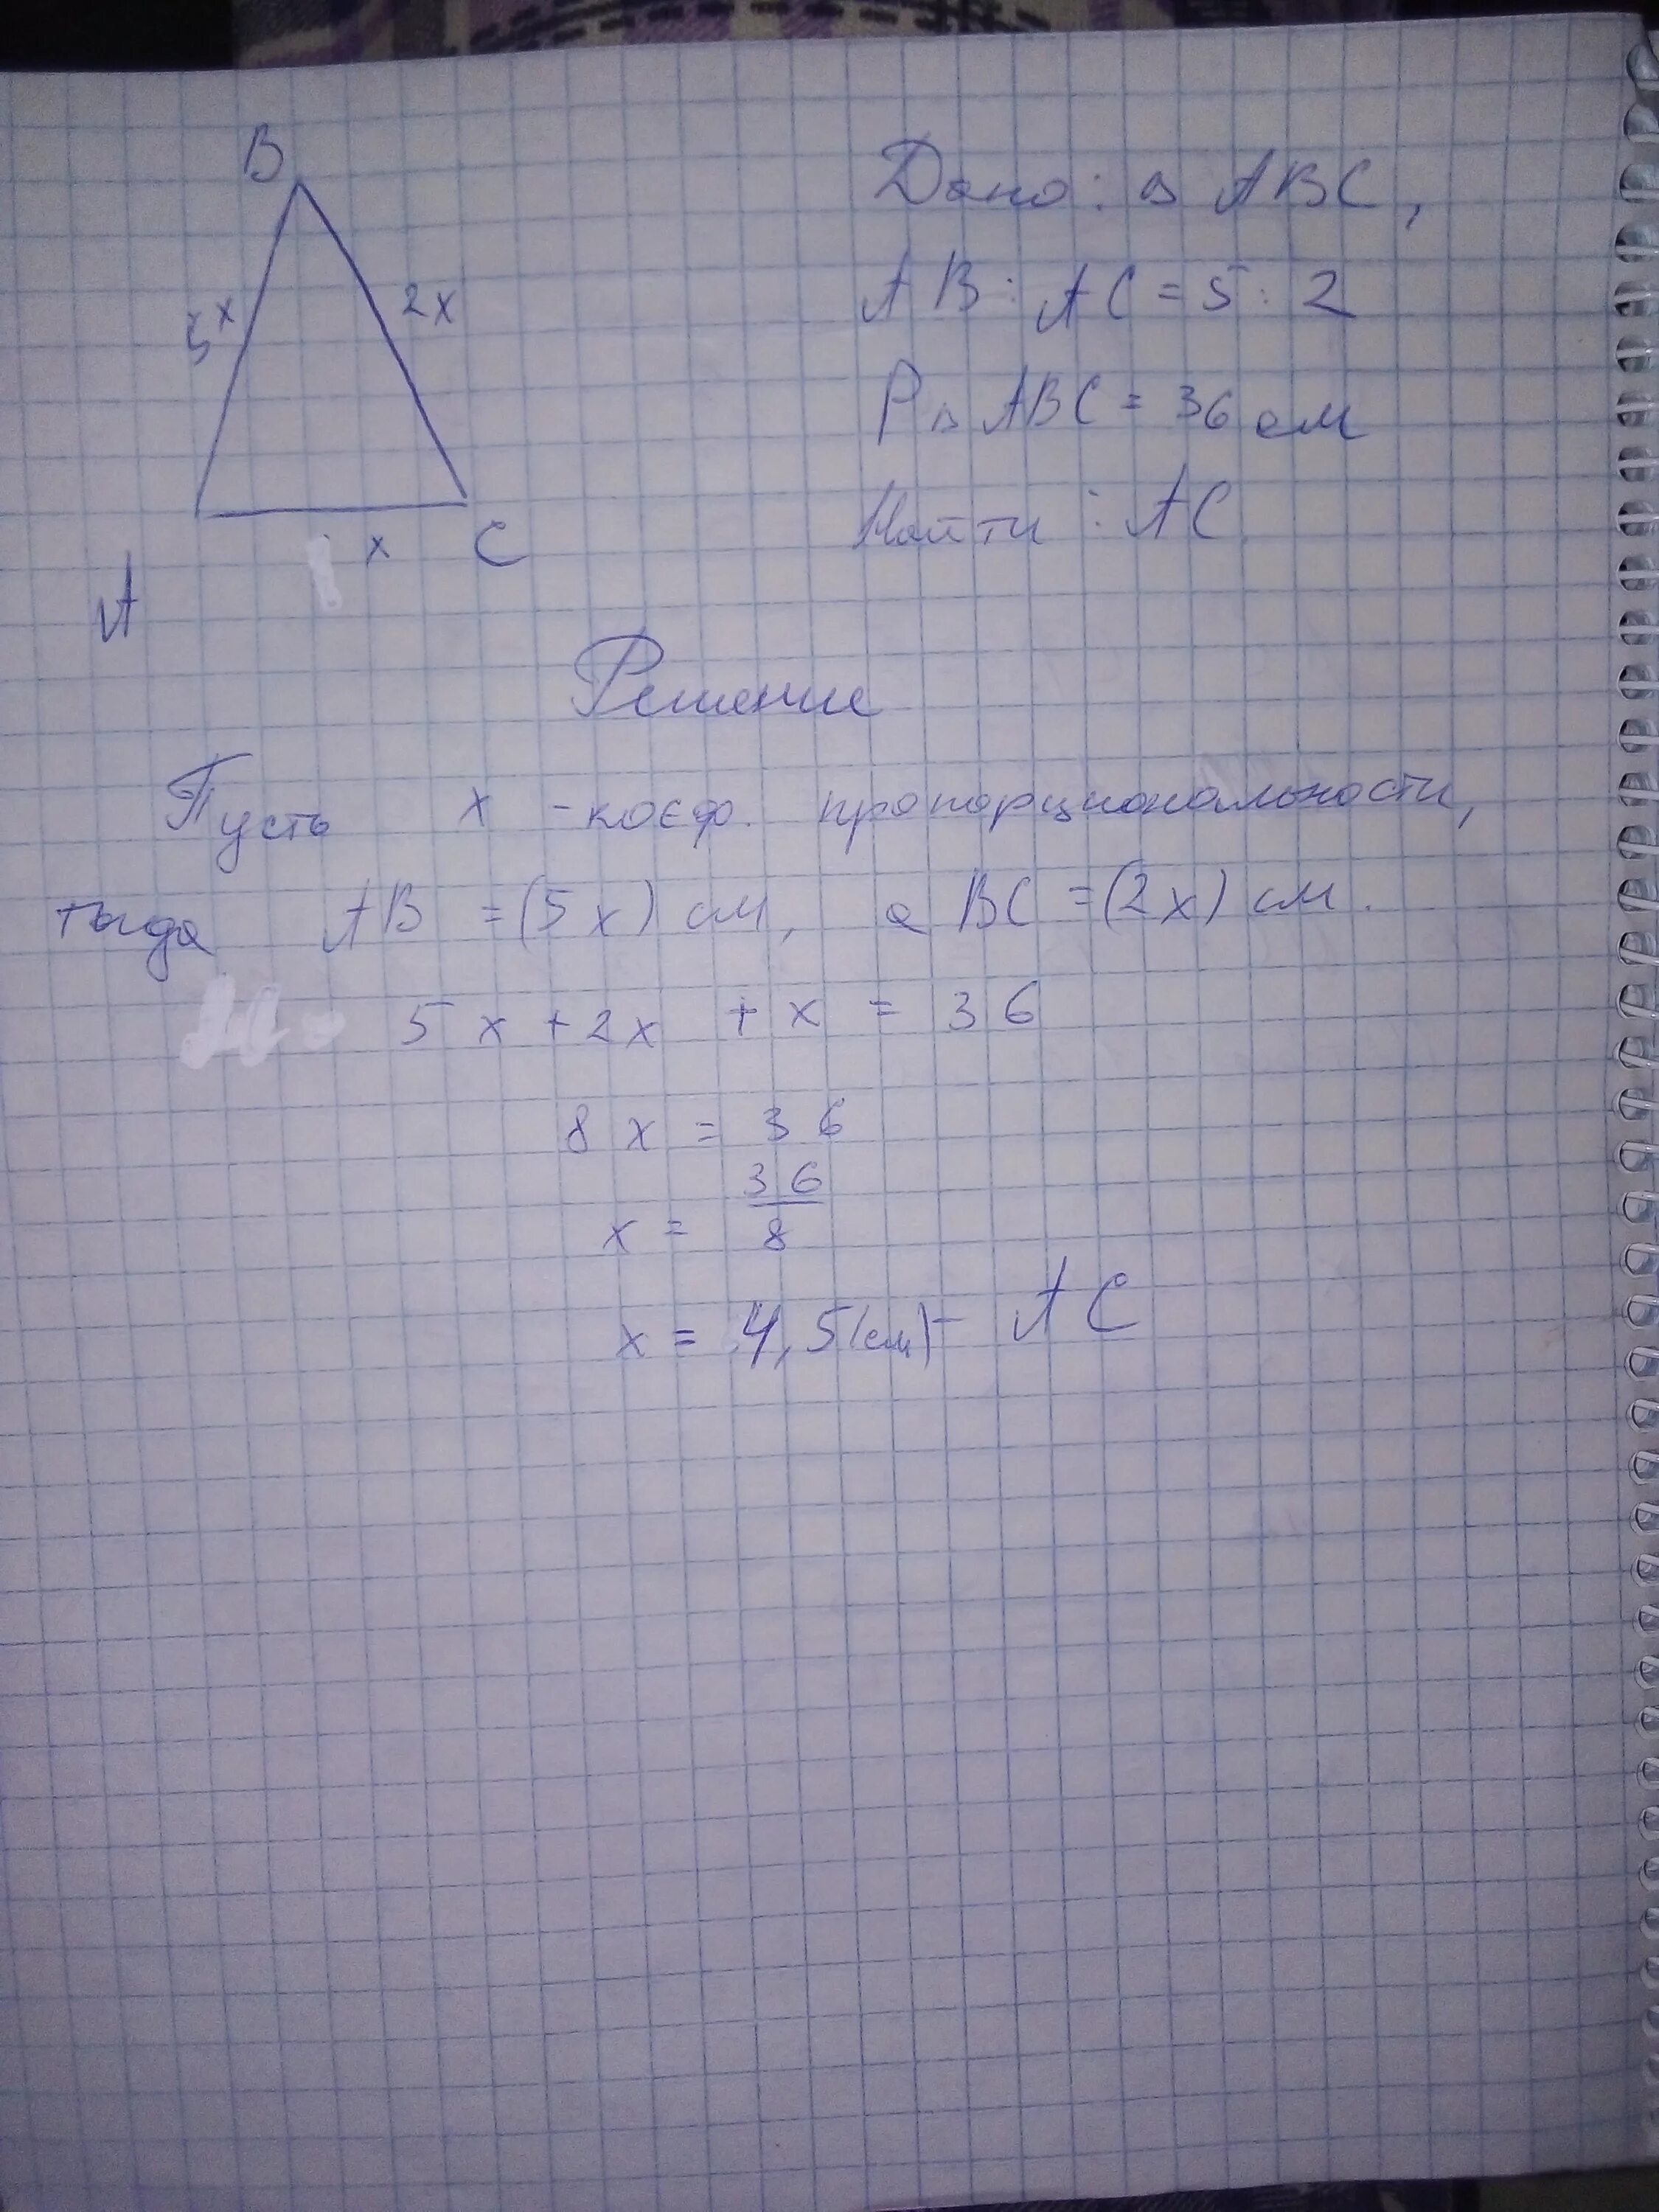 B
5x
2x
x
C
A
Дано: △ ABC,
AB : AC = 5 : 2
P△ABC = 36 см
Найти : AC
Решение
Пусть x - коєф. пропорциональности,
тогда AB = (5x) см, а BC = (2x) см.
5x + 2x + x = 36
8x = 36
x = 36/8
x = 4,5(см) - AC